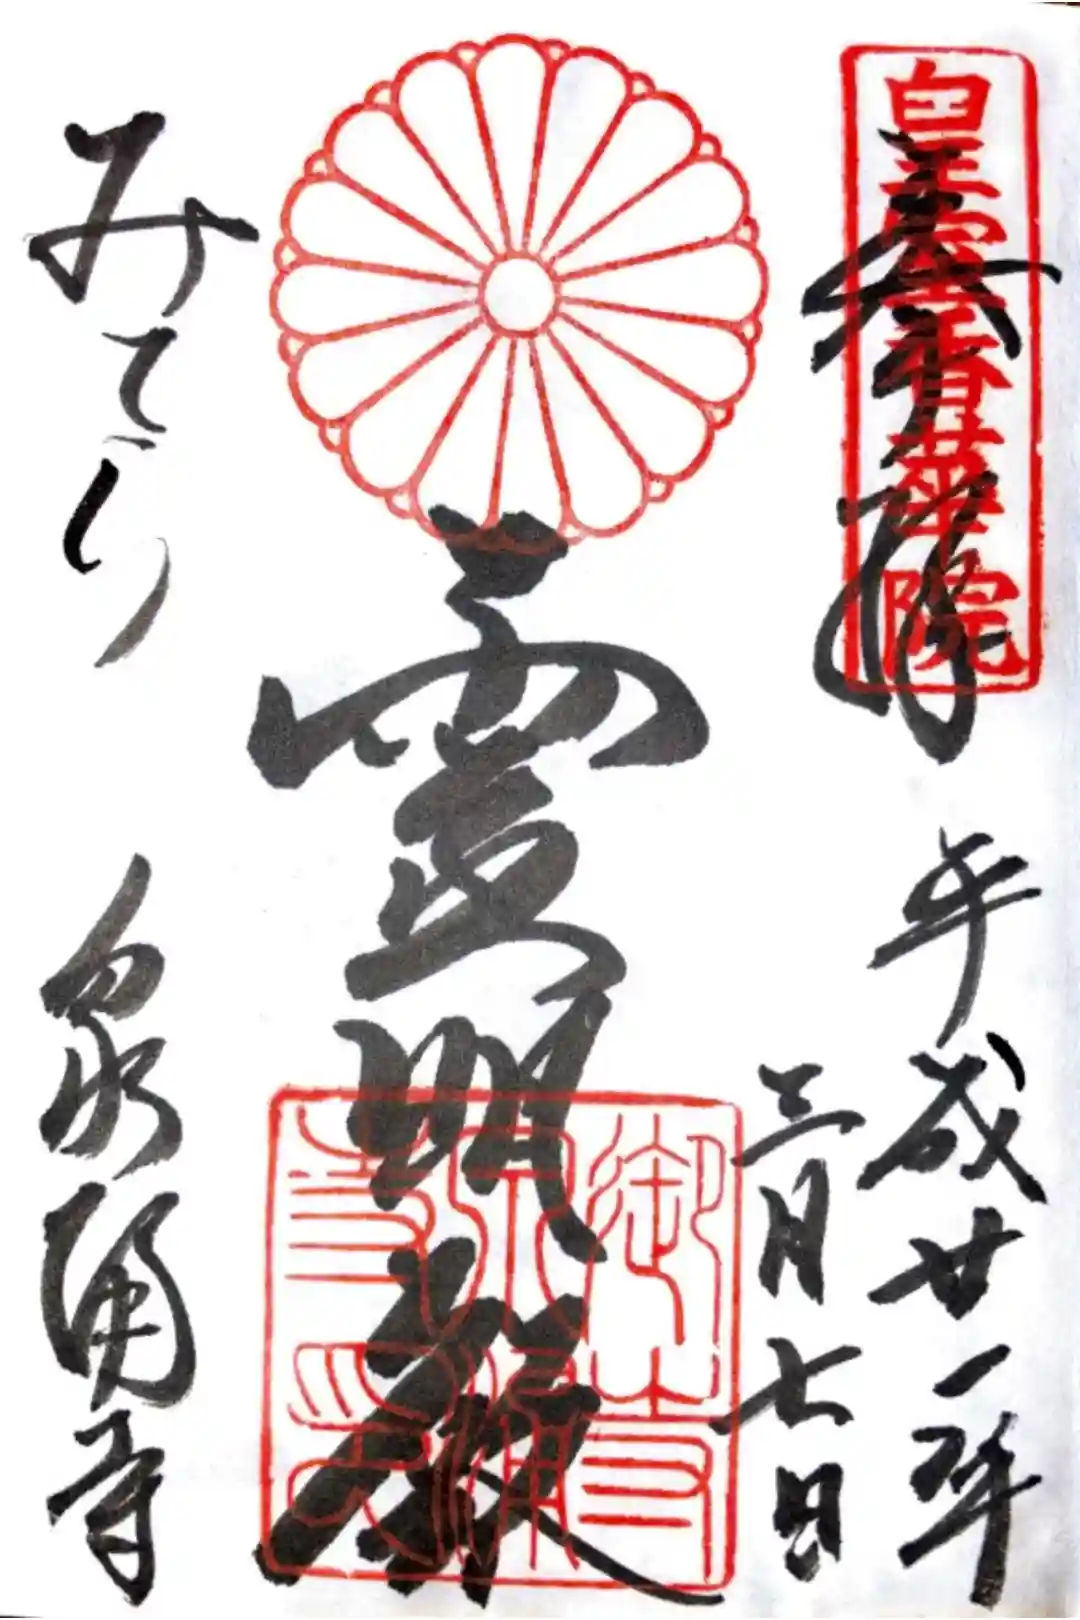 皇室香華院
奉拝
平成廿一年
三月七日
霊明殿
御寺泉涌寺之印
みてら
泉涌寺